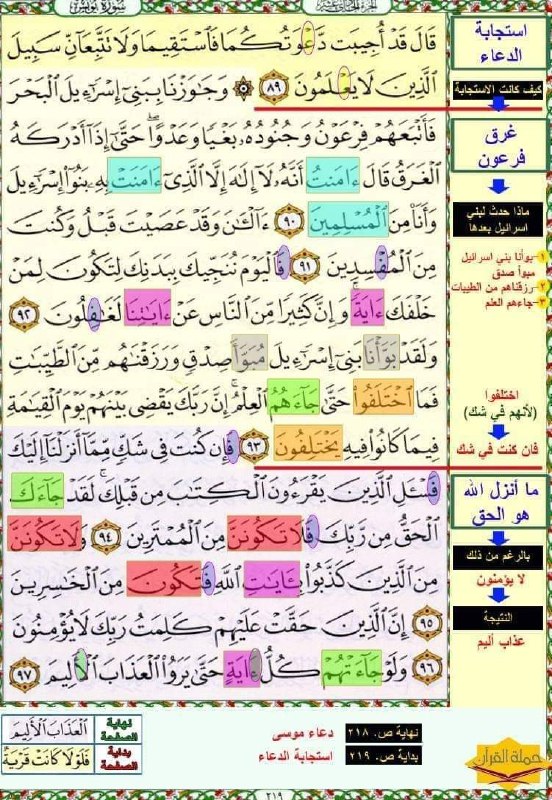 سورة يونس
الجزء الحادي عشر
قَالَ قَدْ أُجِيبَت دَّعْوَتُكُمَا فَٱسْتَقِيمَا وَلَا تَتَّبِعَآنِّ سَبِيلَ
ٱلَّذِينَ لَا يَعْلَمُونَ ٨٩ ۞ وَجَٰوَزْنَا بِبَنِىٓ إِسْرَٰٓءِيلَ ٱلْبَحْرَ
فَأَتْبَعَهُمْ فِرْعَوْنُ وَجُنُودُهُۥ بَغْيًا وَعَدْوًا ۖ حَتَّىٰٓ إِذَآ أَدْرَكَهُ
ٱلْغَرَقُ قَالَ ءَامَنتُ أَنَّهُۥ لَآ إِلَٰهَ إِلَّا ٱلَّذِىٓ ءَامَنَتْ بِهِۦ بَنُوٓا۟ إِسْرَٰٓءِيلَ
وَأَنَا۠ مِنَ ٱلْمُسْلِمِينَ ٩٠ ءَآلْـَٰٔنَ وَقَدْ عَصَيْتَ قَبْلُ وَكُنتَ
مِنَ ٱلْمُفْسِدِينَ ٩١ فَٱلْيَوْمَ نُنَجِّيكَ بِبَدَنِكَ لِتَكُونَ لِمَنْ
خَلْفَكَ ءَايَةً ۚ وَإِنَّ كَثِيرًا مِّنَ ٱلنَّاسِ عَنْ ءَايَٰتِنَا لَغَٰفِلُونَ ٩٢
وَلَقَدْ بَوَّأْنَا بَنِىٓ إِسْرَٰٓءِيلَ مُبَوَّأَ صِدْقٍ وَرَزَقْنَٰهُم مِّنَ ٱلطَّيِّبَٰتِ
فَمَا ٱخْتَلَفُوا۟ حَتَّىٰ جَآءَهُمُ ٱلْعِلْمُ ۚ إِنَّ رَبَّكَ يَقْضِى بَيْنَهُمْ يَوْمَ ٱلْقِيَٰمَةِ
فِيمَا كَانُوا۟ فِيهِ يَخْتَلِفُونَ ٩٣ فَإِن كُنتَ فِى شَكٍّ مِّمَّآ أَنزَلْنَآ إِلَيْكَ
فَسْـَٔلِ ٱلَّذِينَ يَقْرَءُونَ ٱلْكِتَٰبَ مِن قَبْلِكَ ۚ لَقَدْ جَآءَكَ
ٱلْحَقُّ مِن رَّبِّكَ فَلَا تَكُونَنَّ مِنَ ٱلْمُمْتَرِينَ ٩٤ وَلَا تَكُونَنَّ
مِنَ ٱلَّذِينَ كَذَّبُوا۟ بِـَٔايَٰتِ ٱللَّهِ فَتَكُونَ مِنَ ٱلْخَٰسِرِينَ
٩٥ إِنَّ ٱلَّذِينَ حَقَّتْ عَلَيْهِمْ كَلِمَتُ رَبِّكَ لَا يُؤْمِنُونَ
٩٦ وَلَوْ جَآءَتْهُمْ كُلُّ ءَايَةٍ حَتَّىٰ يَرَوُا۟ ٱلْعَذَابَ ٱلْأَلِيمَ ٩٧
استجابة
الدعاء
كيف كانت الاستجابة
غرق
فرعون
ماذا حدث لبني
اسرائيل بعدها
١-بوأنا بني اسرائيل
مبوأ صدق
٢-رزقناهم من الطيبات
٣-جاءهم العلم
اختلفوا
(لأنهم في شك)
فإن كنت في شك
ما أنزل الله
هو الحق
بالرغم من ذلك
لا يؤمنون
النتيجة
عذاب أليم
نهاية ص. ٢١٨ دعاء موسى
بداية ص. ٢١٩ استجابة الدعاء
نهاية الصفحة ٱلْعَذَابَ ٱلْأَلِيمَ
بداية الصفحة فَلَوْلَا كَانَتْ قَرْيَةٌ
حملة القرآن
٢١٩